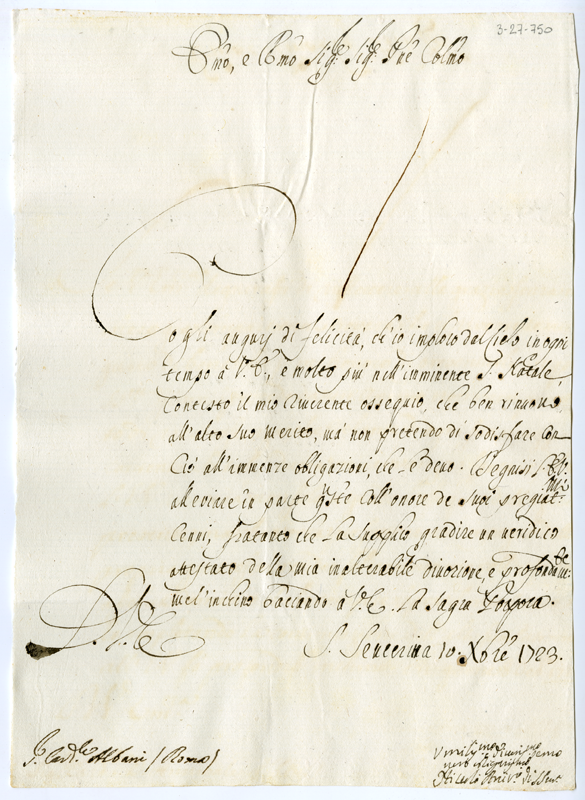 3-27-750
Emo, e Rmo Sig.re Sig.re Pne Colmo
Cogli augurj di felicità, ch'io imploro dal Cielo in ogni
tempo à V. E., e molto più nell'imminente S. Natale,
Contesto il mio riverente ossequio, che ben rinuovo
all'alto suo merito, mà non pretendo di sodisfare con
Ciò all'immenze obligazioni, che Le devo. Degnisi V. E.
alleviare in parte q.ste coll'onore de suoi pregiat.mi
Cenni, fratanto che La supplico gradire un veridico
attestato della mia inalterabile divozione, e profondam.te
me l'inchino baciando à V. E. La Sagra Porpora.
D. V. E.
S. Severina 10. Xbre 1723.
S. Card.le Albani (Roma)
Umiliss.mo